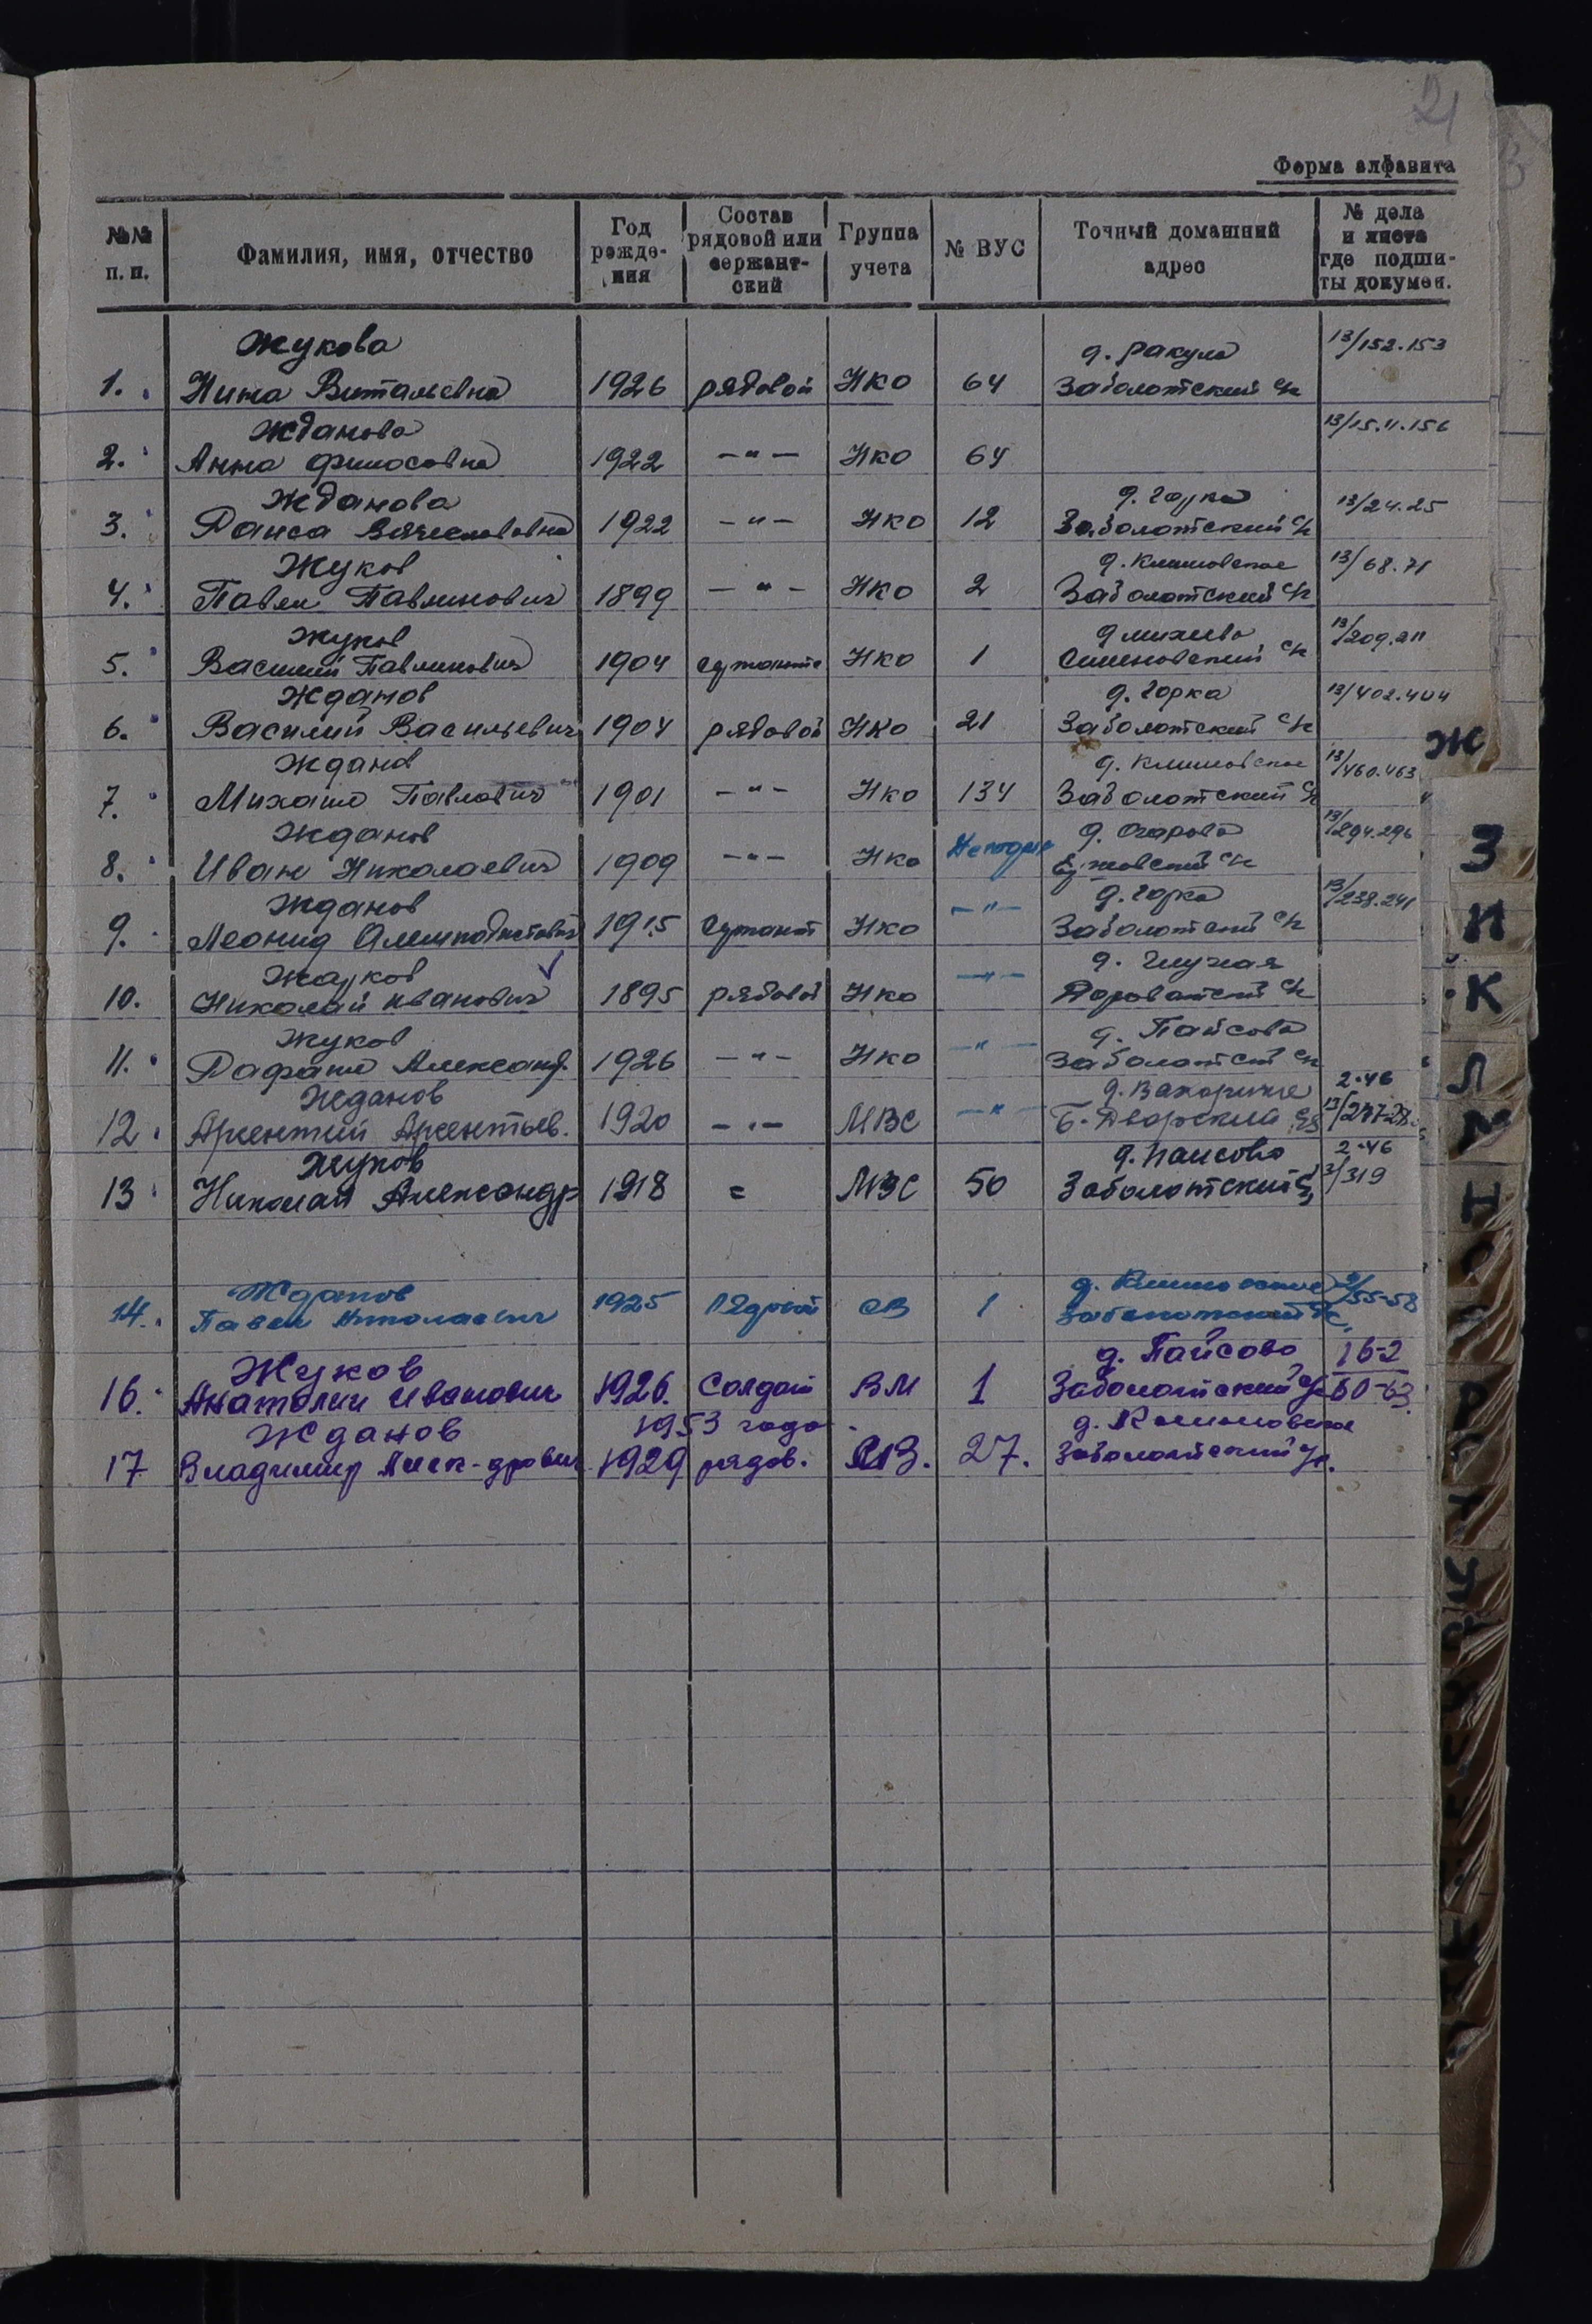 21
Форма алфавита
№№ п. п. Фамилия, имя, отчество Год рождения Состав рядовой или сержантский Группа учета № ВУС Точный домашний адрес № дела и листа где подшиты докумен.
Жукова д. Ракула 13/152.153
1. Нина Витальевна 1926 рядовой НКО 64 Заболотский с/с
Жданова 13/15.11.156
2. Анна 1922 —"— НКО 64
Жданова д. Горка 13/24.25
3. Раиса Вячеславовна 1922 —"— НКО 12 Заболотский с/с
Жуков д. Климовское 13/68.71
4. Павел Павлинович 1899 —"— НКО 2 Заболотский с/с
Жуков 13/209.211
5. Василий Павлинович 1904 НКО 1 с/с
Жданов д. Горка 13/402.404
6. Василий Васильевич 1904 рядовой НКО 21 Заболотский с/с
Жданов д. Климовское 13/460.463
7. Михаил Павлович 1901 —"— НКО 134 Заболотский с/с
Жданов д. Огарово 13/294.296
8. Иван Николаевич 1909 —"— НКО с/с
Жданов д. Горка 13/238.241
9. Леонид 1915 сержант НКО —"— с/с
Жуков д. Глухая
10. Николай Иванович 1895 рядовой НКО —"— с/с
Жуков д. Пайсово
11. Рафаил Александ. 1926 —"— НКО —"— с/с
Жданов 2.46
12. 1920 —"— МВС —"— Б-Дворский 13/
Жуков д. Паисово 2.46
13 Николай Александр 1918 = МВС 50 Заболотский 3/319
Жданов д. Климовское
14. Павел Николаевич 1925 Рядовой СВ 1 Заболотский 55-58
Жуков д. Пайсово 16-2
16. Анатолий Иванович 1926. Солдат ВМ 1 Заболотский 60-63
Жданов 1953 года д. Климовское
17 Владимир Алек-дрович 1929 рядов. 27. Заболотский
Ж
З
И
К
Л